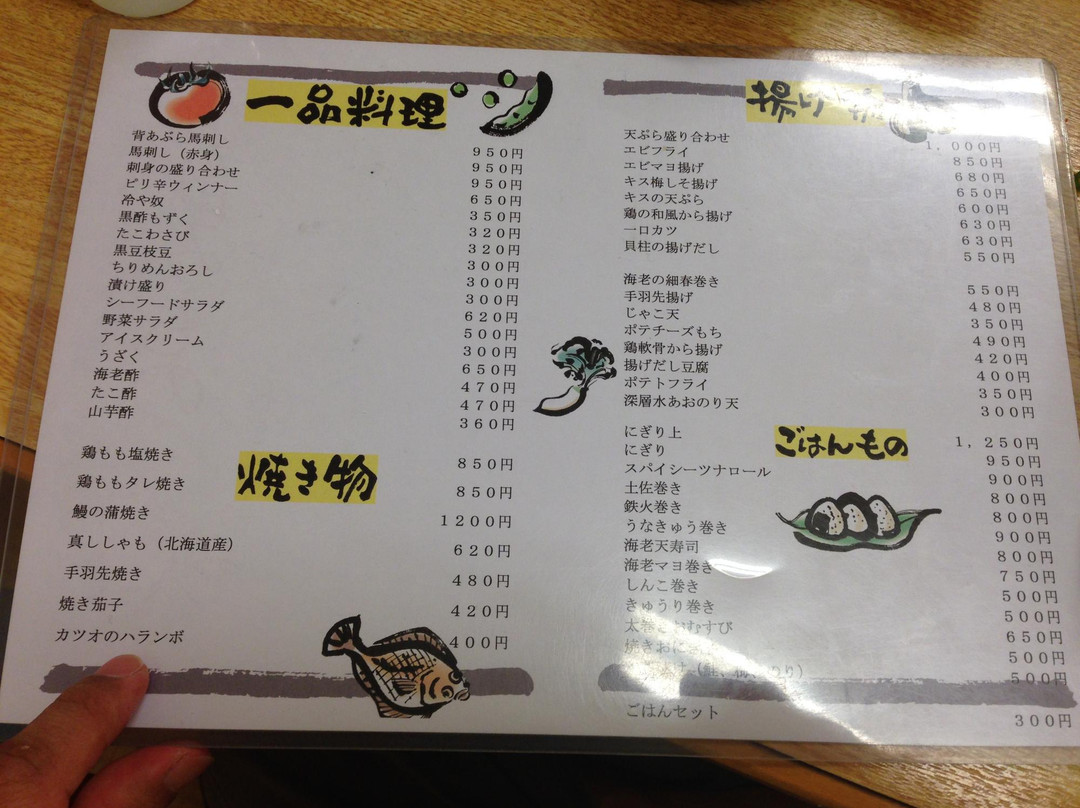 一品料理
背あぶら馬刺し ９５０円
馬刺し（赤身） ９５０円
刺身の盛り合わせ ９５０円
ピリ辛ウィンナー ６５０円
冷や奴 ３５０円
黒酢もずく ３２０円
たこわさび ３２０円
黒豆枝豆 ３００円
ちりめんおろし ３００円
漬け盛り ３００円
シーフードサラダ ６２０円
野菜サラダ ５００円
アイスクリーム ３００円
うざく ６５０円
海老酢 ４７０円
たこ酢 ４７０円
山芋酢 ３６０円
焼き物
鶏もも塩焼き ８５０円
鶏ももタレ焼き ８５０円
鰻の蒲焼き １２００円
真ししゃも（北海道産） ６２０円
手羽先焼き ４８０円
焼き茄子 ４２０円
カツオのハランボ ４００円
揚げ物
天ぷら盛り合わせ １，０００円
エビフライ ８５０円
エビマヨ揚げ ６８０円
キス梅しそ揚げ ６５０円
キスの天ぷら ６００円
鶏の和風から揚げ ６３０円
一口カツ ６３０円
貝柱の揚げだし ５５０円
海老の細春巻き ５５０円
手羽先揚げ ４８０円
じゃこ天 ３５０円
ポテチーズもち ４９０円
鶏軟骨から揚げ ４２０円
揚げだし豆腐 ４００円
ポテトフライ ３５０円
深層水あおのり天 ３００円
ごはんもの
にぎり上 １，２５０円
にぎり ９５０円
スパイシーツナロール ９００円
土佐巻き ８００円
鉄火巻き ８００円
うなきゅう巻き ９００円
海老天寿司 ８００円
海老マヨ巻き ７５０円
しんこ巻き ５００円
きゅうり巻き ５００円
太巻きおむすび ６５０円
５００円
５００円
ごはんセット ３００円